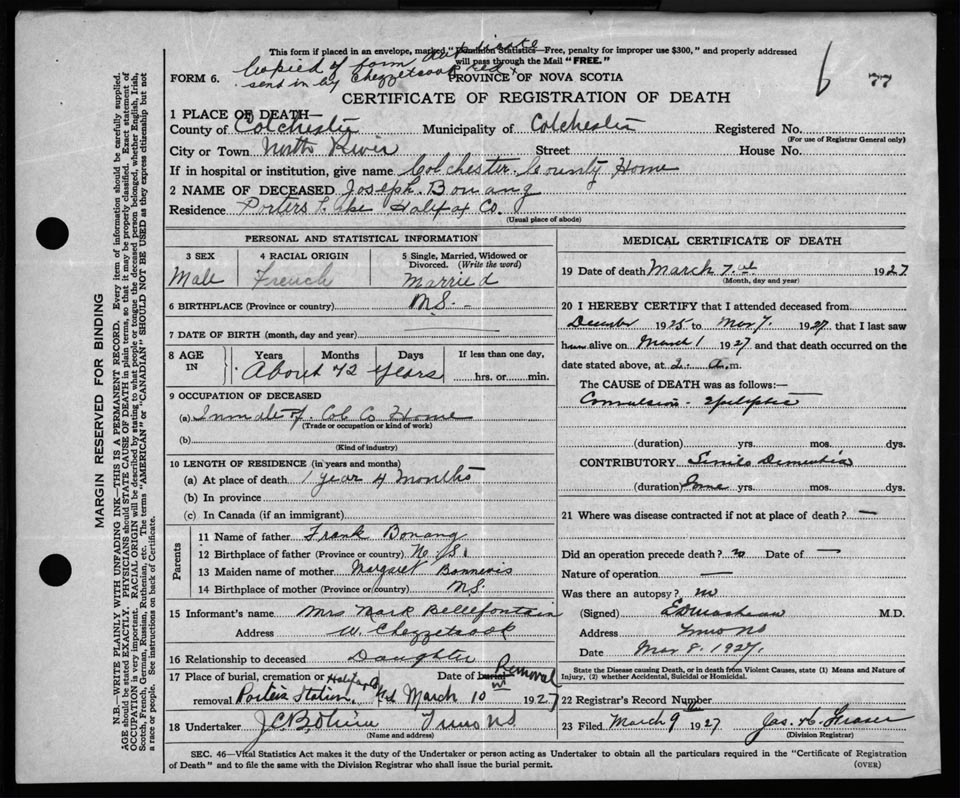 This form if placed in an envelope, marked "Dominion Statistics—Free, penalty for improper use $300," and properly addressed
will pass through the Mail "FREE."
Copied of form
send in by Chezzetcook
FORM 6.
PROVINCE OF NOVA SCOTIA
6
77
CERTIFICATE OF REGISTRATION OF DEATH
1 PLACE OF DEATH—
County of Colchester Municipality of Colchester Registered No.
(For use of Registrar General only)
City or Town North River Street House No.
If in hospital or institution, give name Colchester County Home
2 NAME OF DECEASED Joseph Bonang
Residence Porters Lake Halifax Co.
(Usual place of abode)
PERSONAL AND STATISTICAL INFORMATION
3 SEX 4 RACIAL ORIGIN 5 Single, Married, Widowed or Divorced. (Write the word)
Male French Married
6 BIRTHPLACE (Province or country) N.S.
7 DATE OF BIRTH (month, day and year)
8 AGE IN Years Months Days If less than one day,
About 72 Years hrs. or min.
9 OCCUPATION OF DECEASED
(a) Inmate of Col Co Home
(Trade or occupation or kind of work)
(b)
(Kind of industry)
10 LENGTH OF RESIDENCE (in years and months)
(a) At place of death 1 year 4 months
(b) In province
(c) In Canada (if an immigrant)
Parents
11 Name of father Frank Bonang
12 Birthplace of father (Province or country) N.S.
13 Maiden name of mother Margaret
14 Birthplace of mother (Province or country) N.S.
15 Informant's name Mrs Mark Bellefontain
Address W. Chezzetcook
16 Relationship to deceased Daughter
17 Place of burial, cremation or Halifax Co Date of burial Removal
removal Porters Station, March 10 1927
18 Undertaker
(Name and address)
MEDICAL CERTIFICATE OF DEATH
19 Date of death March 7 1927
(Month, day and year)
20 I HEREBY CERTIFY that I attended deceased from
December 1925 to Mar 7. 1927, that I last saw
him alive on March 1 1927 and that death occurred on the
date stated above, at 2 a.m.
The CAUSE OF DEATH was as follows:—
Convulsion - epileptic
(duration) yrs. mos. dys.
CONTRIBUTORY Senile Dementia
(duration) Some yrs. mos. dys.
21 Where was disease contracted if not at place of death? —
Did an operation precede death? no Date of —
Nature of operation —
Was there an autopsy? no
(Signed) M.D.
Address Truro NS
Date Mar 8. 1927.
State the Disease causing Death, or in death from Violent Causes, state (1) Means and Nature of
Injury, (2) whether Accidental, Suicidal or Homicidal.
22 Registrar's Record Number
23 Filed March 9 1927 Jas. H. Fraser
(Division Registrar)
SEC. 46—Vital Statistics Act makes it the duty of the Undertaker or person acting as Undertaker to obtain all the particulars required in the "Certificate of Registration
of Death" and to file the same with the Division Registrar who shall issue the burial permit.
(OVER)
MARGIN RESERVED FOR BINDING
N.B.—WRITE PLAINLY WITH UNFADING INK—THIS IS A PERMANENT RECORD. Every item of information should be carefully supplied.
AGE should be stated EXACTLY. PHYSICIANS should STATE CAUSE OF DEATH in plain terms, so that it may be properly classified. Exact statement of
OCCUPATION is very important. RACIAL ORIGIN will be described by stating to what people or tongue the deceased person belonged, whether English, Irish,
Scotch, French, German, Russian, Ruthenian, etc. The terms "AMERICAN" or "CANADIAN" SHOULD NOT BE USED as they express citizenship but not
a race or people. See instructions on back of Certificate.